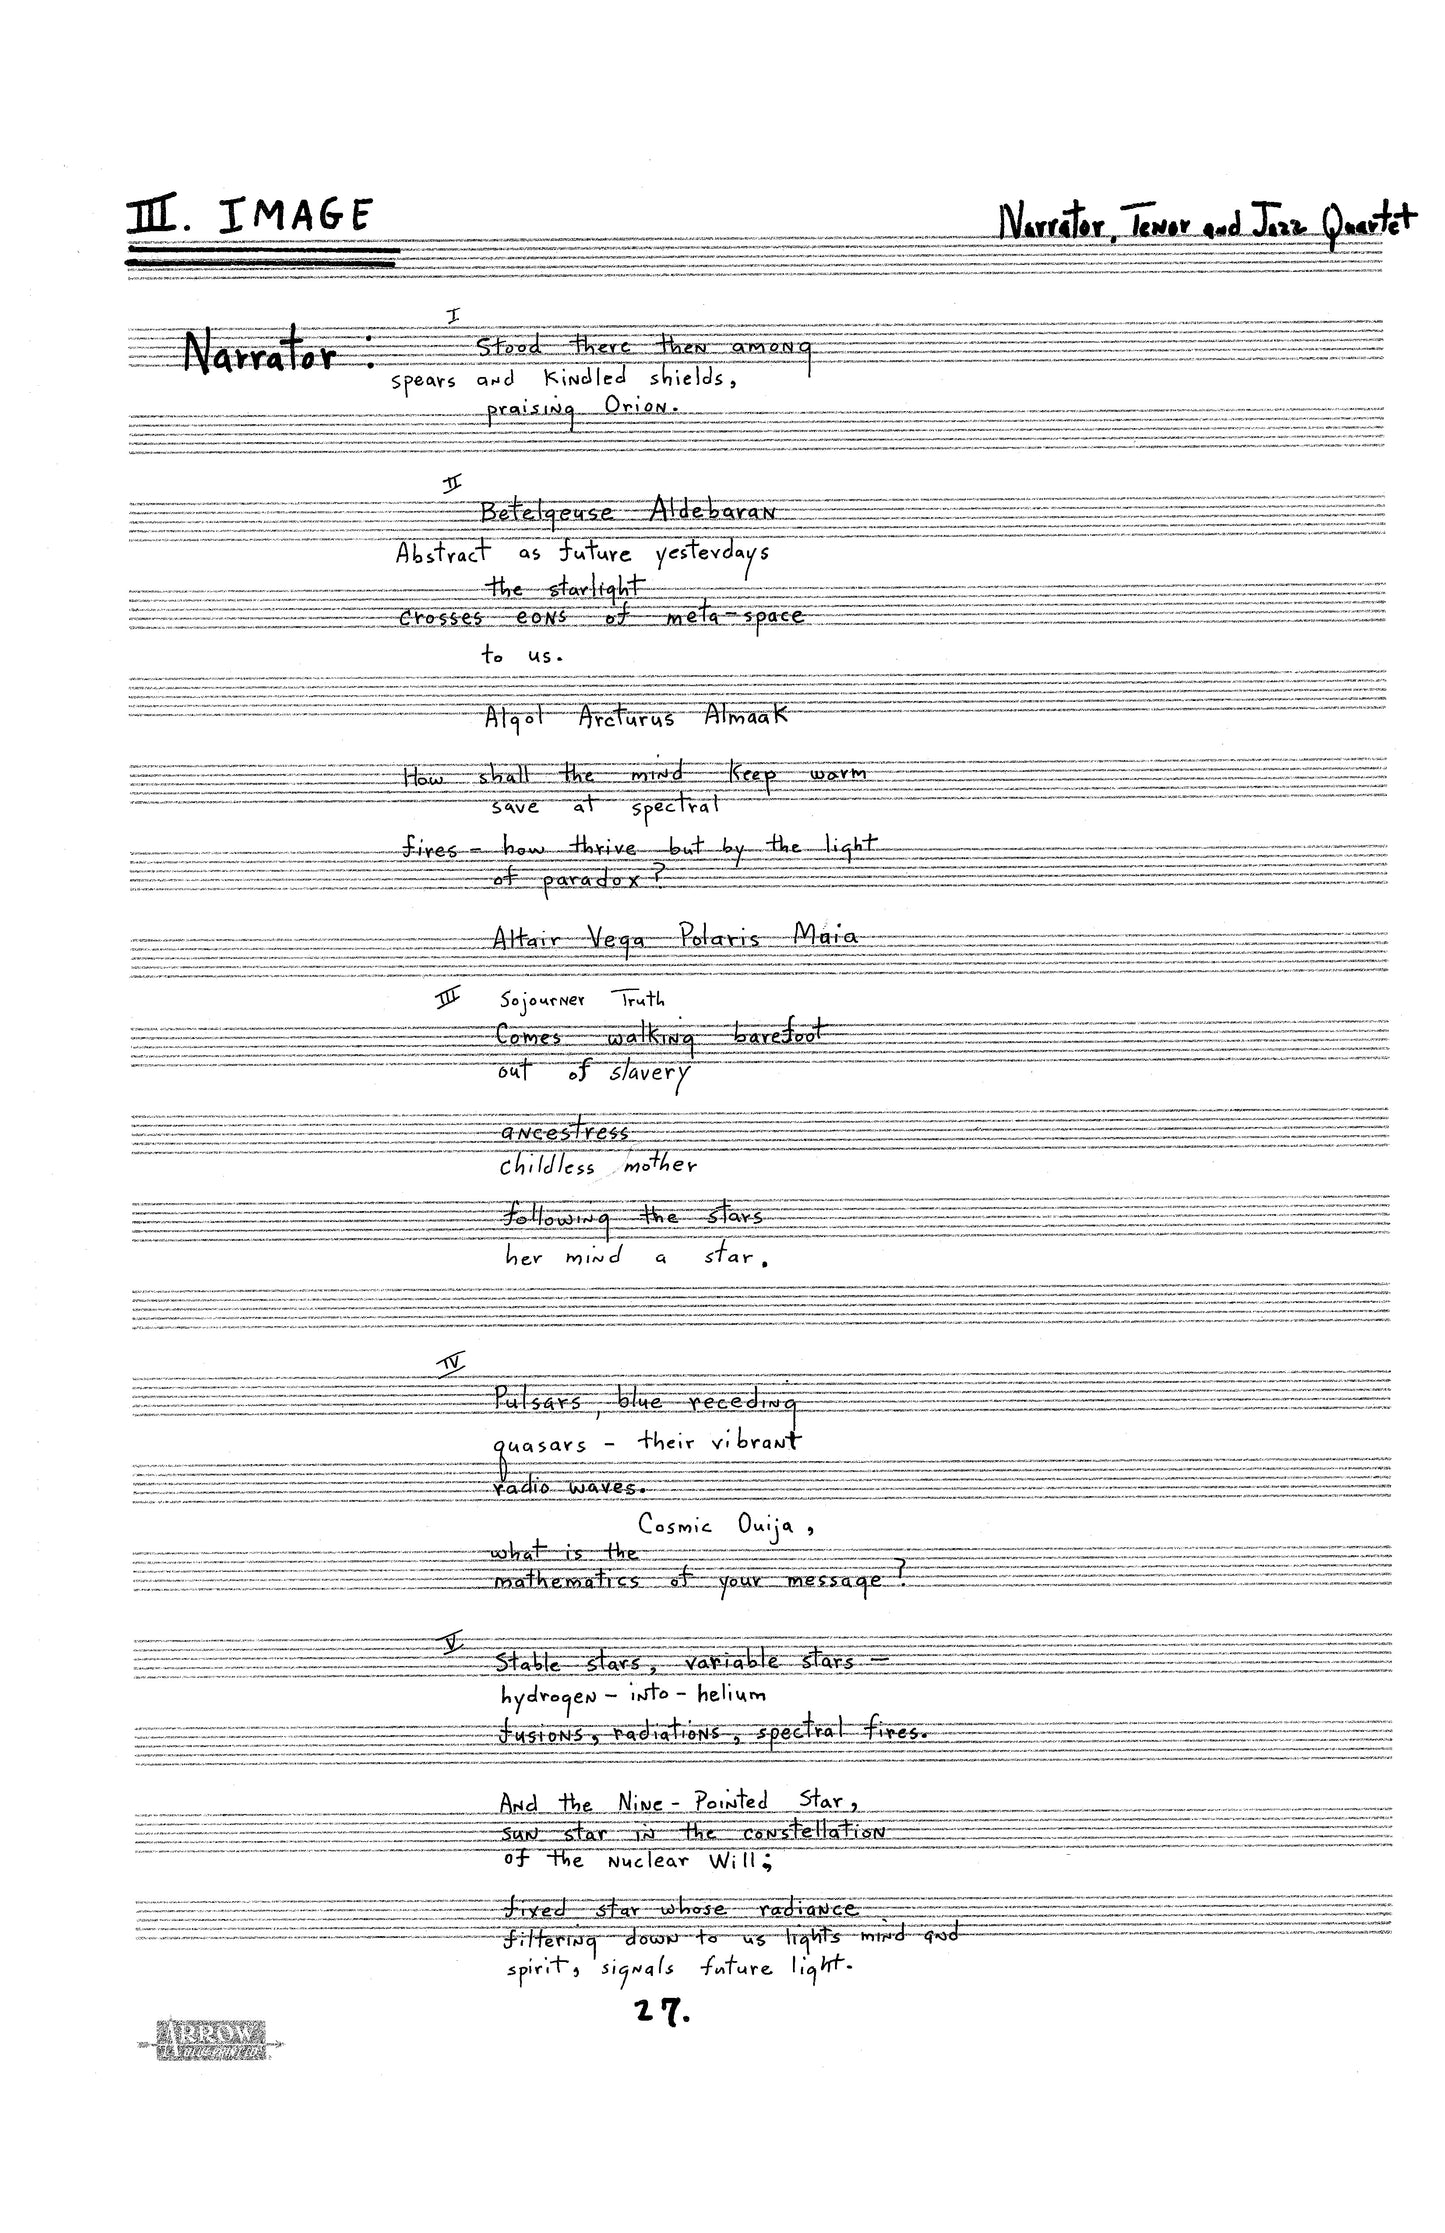 III. IMAGE
Narrator, Tenor and Jazz Quartet
Narrator:
I
Stood there then among
spears and kindled shields,
praising Orion.
II
Betelgeuse Aldebaran
Abstract as future yesterdays
the starlight
crosses eons of meta-space
to us.
Algol Arcturus Almaak
How shall the mind keep warm
save at spectral
fires - how thrive but by the light
of paradox?
Altair Vega Polaris Maia
III
Sojourner Truth
Comes walking barefoot
out of slavery
ancestress
childless mother
following the stars
her mind a star.
IV
Pulsars, blue receding
quasars - their vibrant
radio waves.
Cosmic Ouija,
what is the
mathematics of your message?
V
Stable stars, variable stars -
hydrogen-into-helium
fusions, radiations, spectral fires.
And the Nine-Pointed Star,
sun star in the constellation
of the Nuclear Will;
fixed star whose radiance
filtering down to us lights mind and
spirit, signals future light.
27.
ARROW